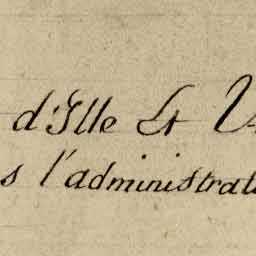 d'Ille Et V
s l'administrat